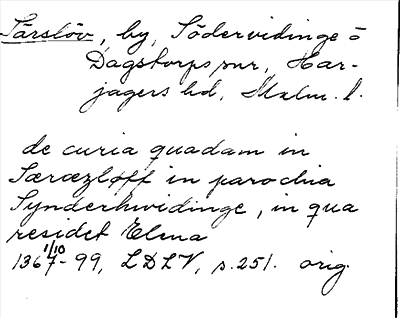 Särslöv, by, Södervidinge o
Dagstorps snr, Har-
jagers hd, Malm. l.
de curia quadam in
Særæzløff in parochia
Synderhwidinge, in qua
residet Elena
1/10
1367-99, LDLV, s. 251. orig.